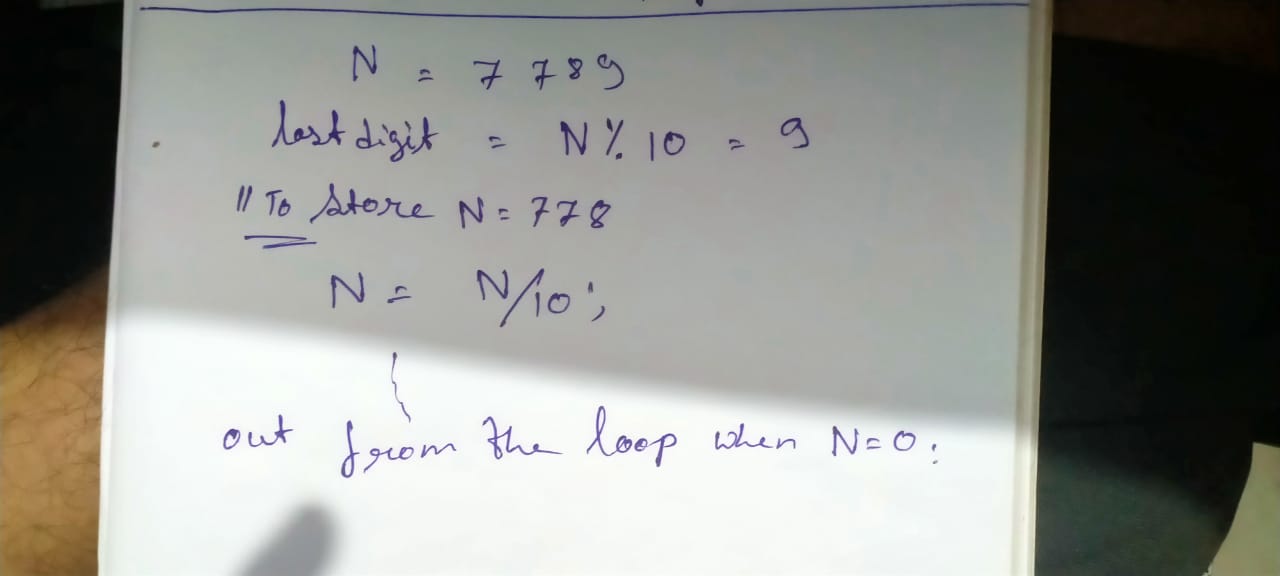 N = 7789
last digit = N % 10 = 9
// To store N = 778
N = N/10;
out from the loop when N=0;